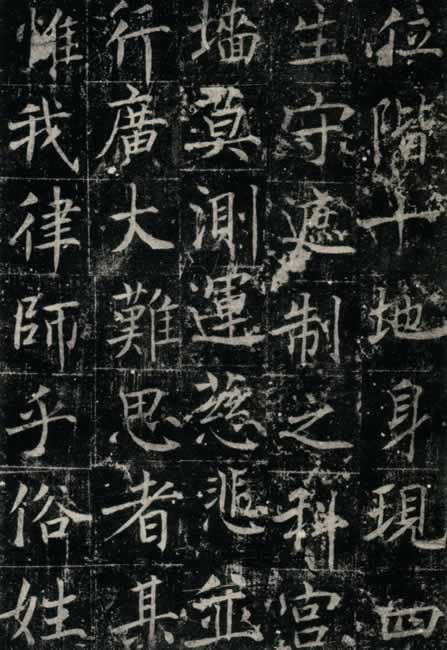 位階十地身現四
生守遮制之科宫
墙莫測運慈悲並
行廣大難思者其
惟我律師乎俗姓